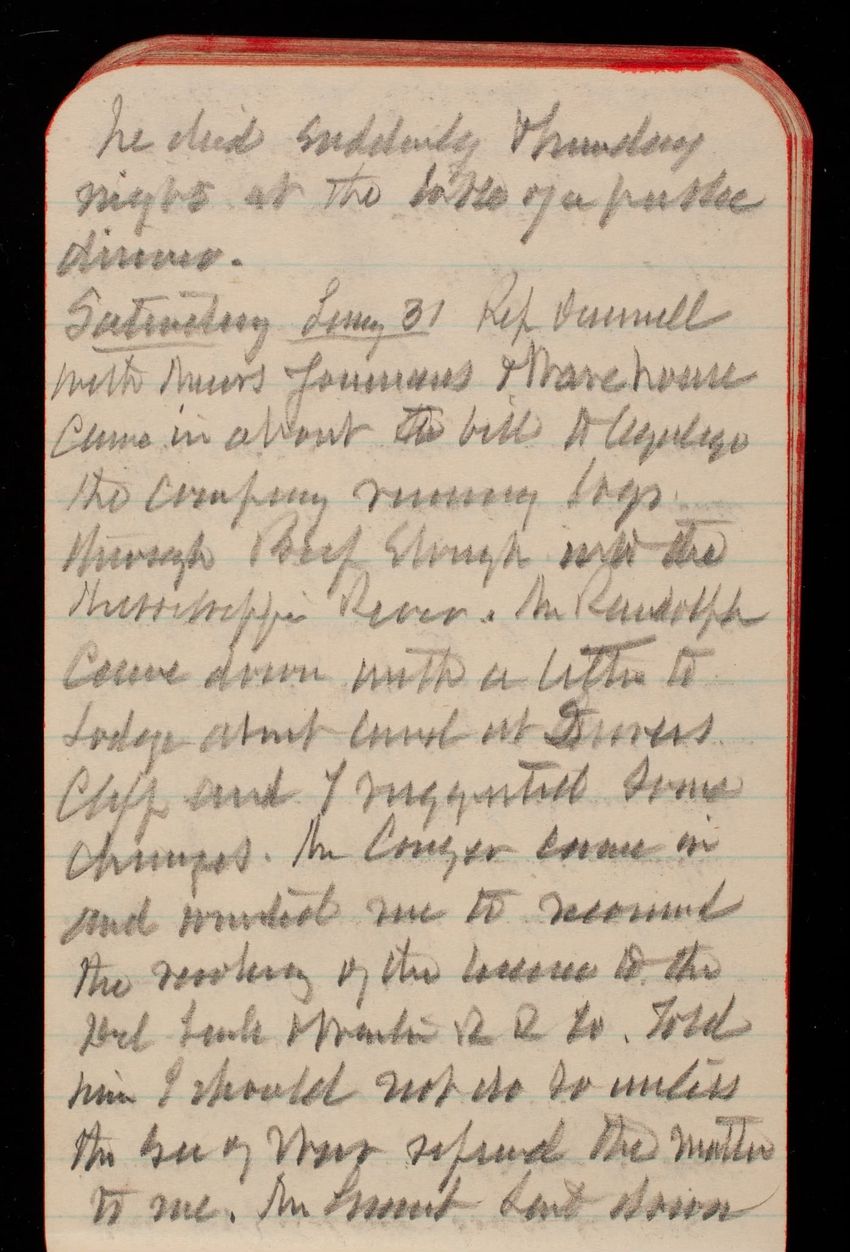 he died suddenly Thursday
night at the table of a public
dinner.
Saturday Jany 31 Rep Dunnell
with Messrs Youmans & Warehouse
came in about the bill to legalize
the company running logs
through Beef Slough into the
Mississippi River. Mr Randolph
came down with a letter to
Lodge about land at Gay
Cliff and I suggested some
changes. Mr Conger came in
and wanted me to recomend
the revoking of the license to the
& R R Co. Told
him I should not do so unless
the Sec of War refered the matter
to me. Mr sent down